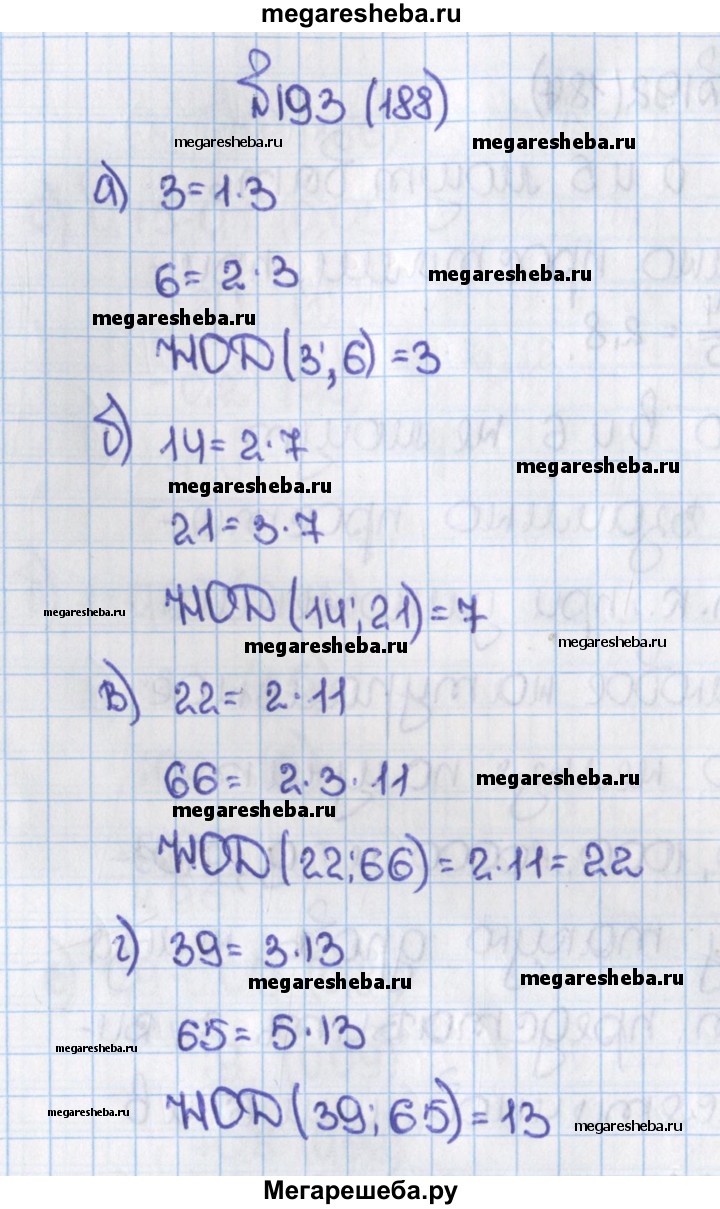 megaresheba.ru
№193 (188)
megaresheba.ru
megaresheba.ru
а) 3=1·3
6=2·3
megaresheba.ru
megaresheba.ru
НОД(3;6)=3
б) 14=2·7
megaresheba.ru
megaresheba.ru
21=3·7
НОД(14;21)=7
megaresheba.ru
megaresheba.ru
megaresheba.ru
в) 22=2·11
66=2·3·11
megaresheba.ru
megaresheba.ru
НОД(22;66)=2·11=22
г) 39=3·13
megaresheba.ru
megaresheba.ru
65=5·13
megaresheba.ru
НОД(39;65)=13
megaresheba.ru
megaresheba.ru
Мегарешеба.ру